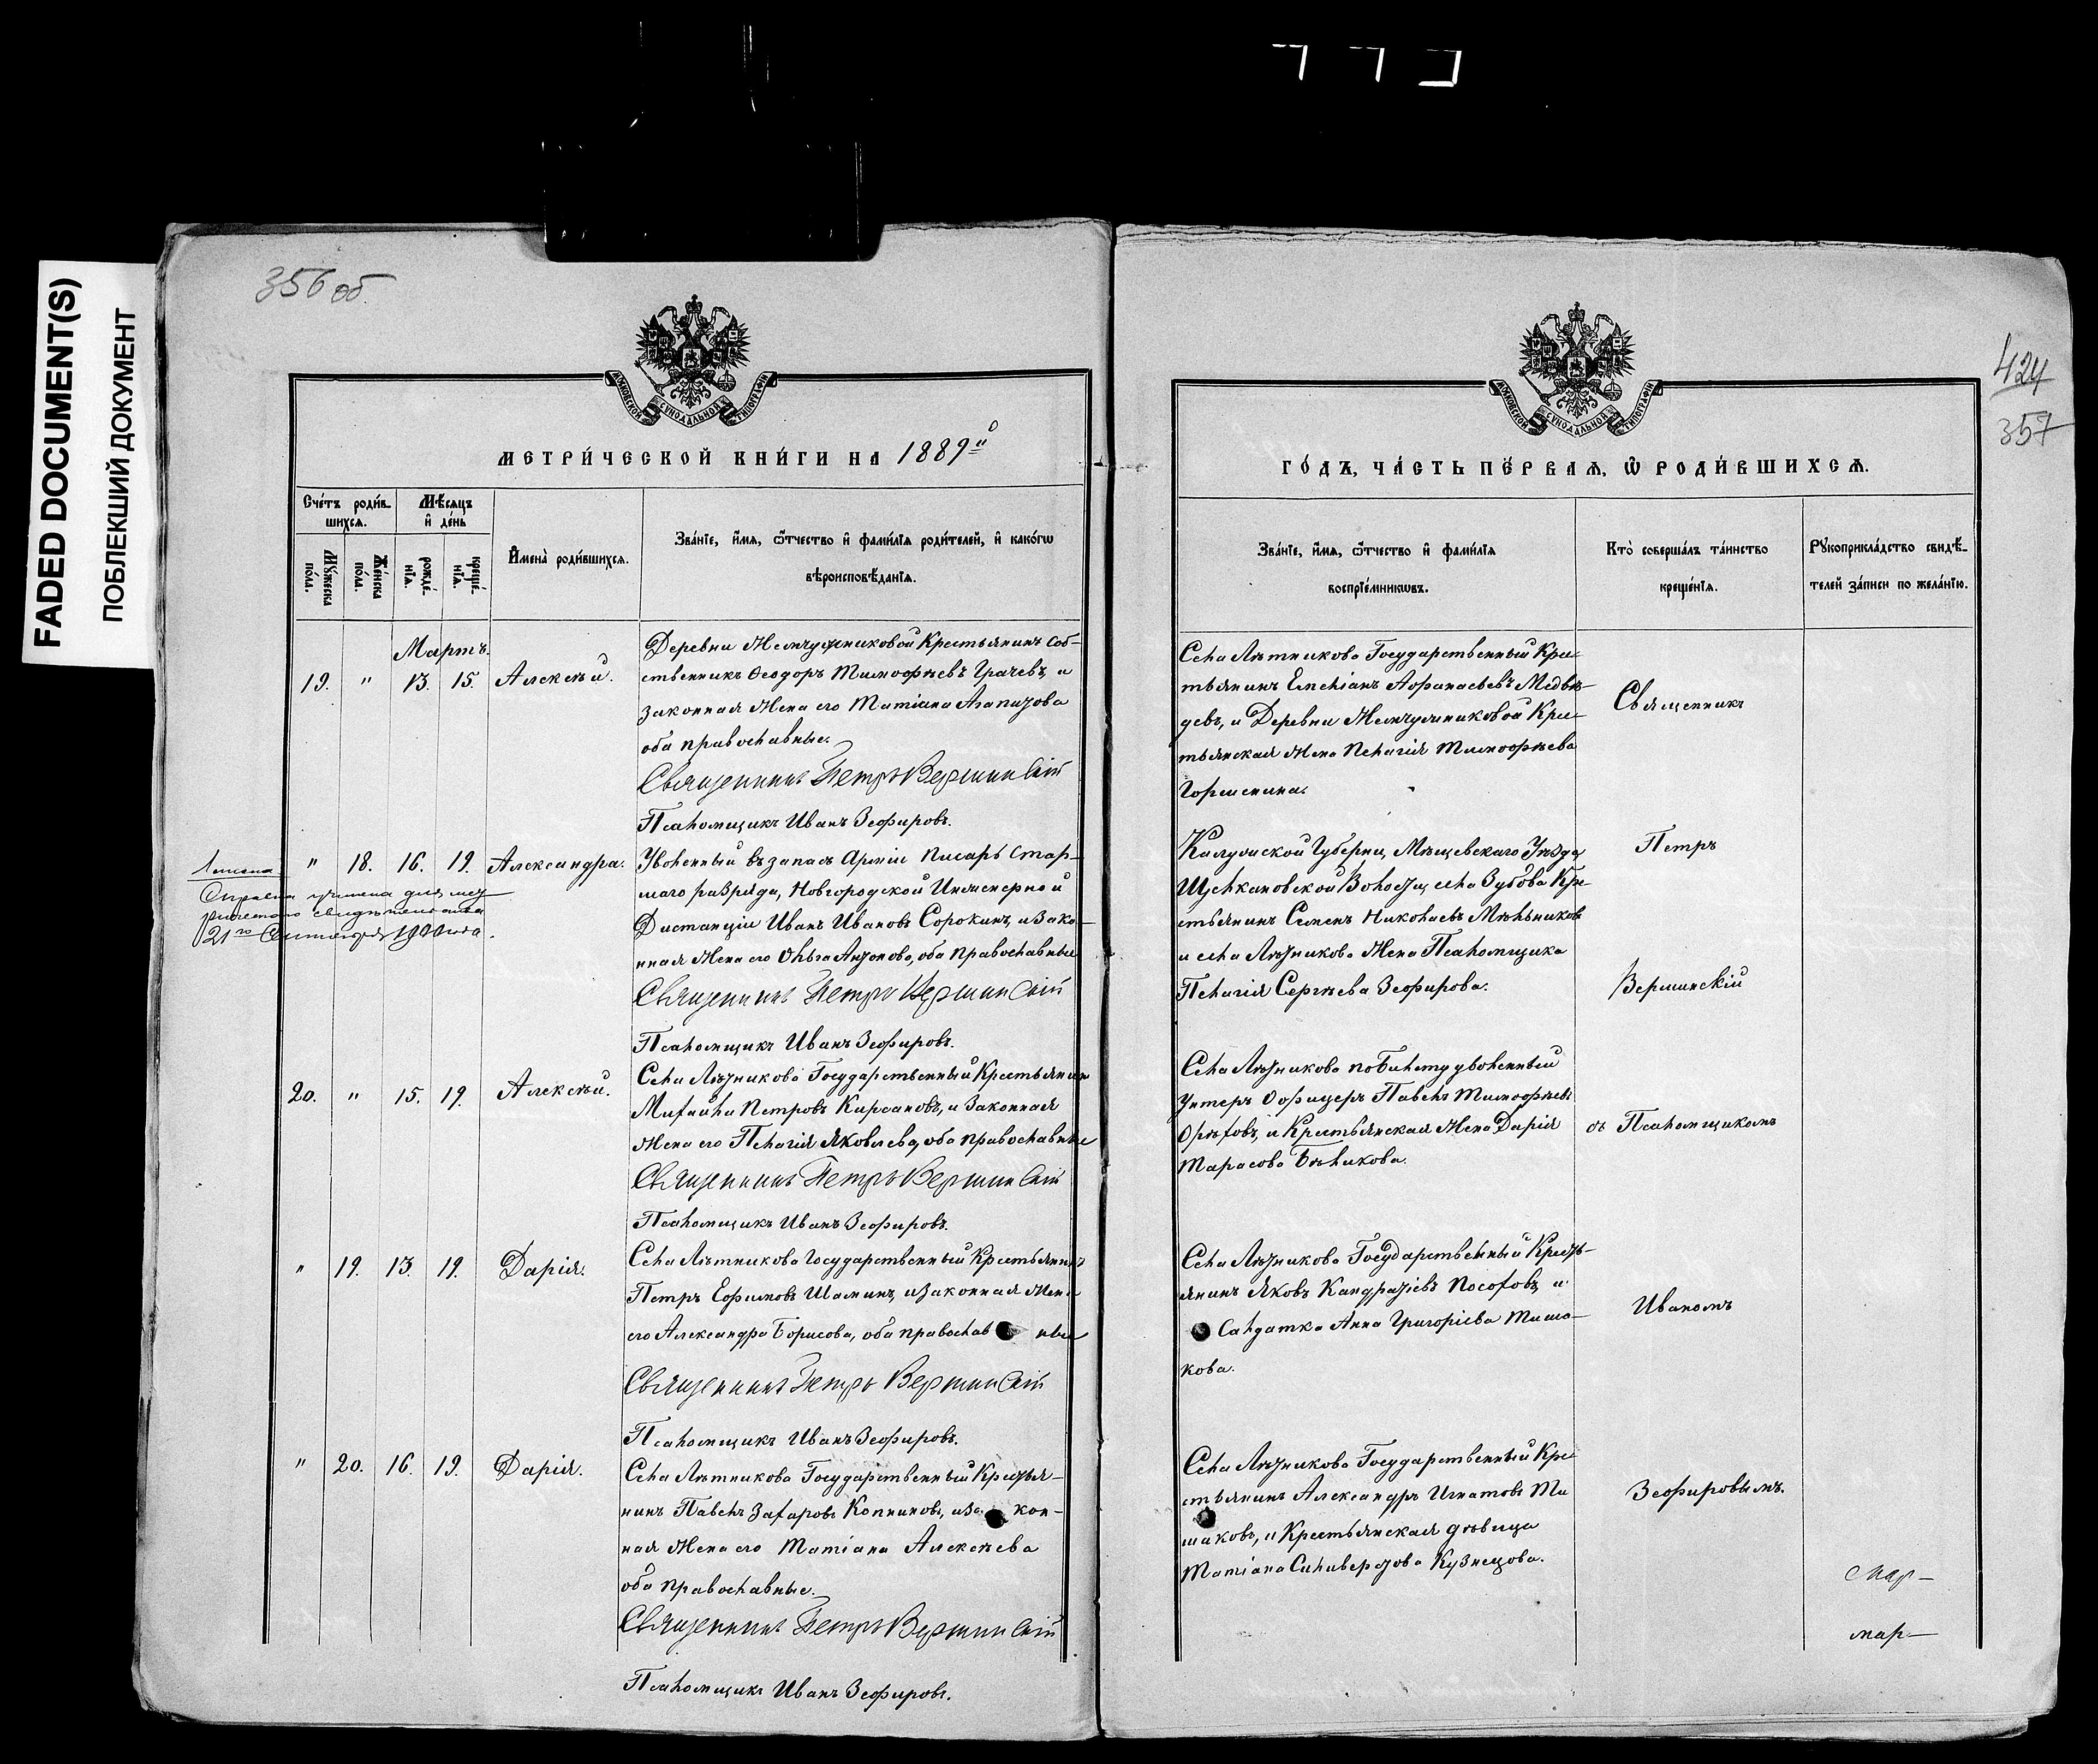 FADED DOCUMENT(S)
ПОБЛЕКШИЙ ДОКУМЕНТ
356 об.
МЕТРИ́ЧЕСКОЙ КНИ́ГИ НА 1889й
Сче́тъ роди́в-
шихсѧ.
Мѣ́сѧцъ
и҆ де́нь
И҆мена̀ роди́вшихсѧ.
Зва́нїе, и҆́мѧ, ѻ҆́тчество и҆ фами́лїѧ роди́телей, и҆ како́гѡ
вѣроисповѣ́данїѧ.
Мꙋ́жеска
по́ла.
Же́нска
по́ла.
рожде́-
нїѧ.
креще́-
нїѧ.
Мартъ.
19. " 13. 15. Алексѣй.
Деревни Жемчужниковой Крестьянинъ соб-
ственникъ Ѳеодоръ Тимоѳѣевъ Грачевъ, и
законная жена его Татіана Агапитова
оба православные.
Священникъ Петръ Вершинскій
Псаломщикъ Иванъ Зефировъ.
" 18. 16. 19. Александра.
Уволенный въ запасъ Арміи писарь стар-
шаго разряда, Новгородской Инженерной
Дистанціи Иванъ Ивановъ Сорокинъ, и зако-
нная жена его Ольга Антонова, оба православные
Священникъ Петръ Вершинскій
Псаломщикъ Иванъ Зефировъ.
20. " 15. 19. Алексѣй.
Села Лѣтникова Государственный Крестьянинъ
Михаилъ Петровъ Кирсановъ, и законная
жена его Пелагія Яковлева, оба православные
Священникъ Петръ Вершинскій
Псаломщикъ Иванъ Зефировъ.
" 19. 13. 19. Дарія.
Села Лѣтникова Государственный Крестьянинъ
Петръ Ефимовъ Шаминъ, и законная жена
его Александра Борисова, оба православ ные
Священникъ Петръ Вершинскій
Псаломщикъ Иванъ Зефировъ.
" 20. 16. 19. Дарія.
Села Лѣтникова Государственный Крестья-
нинъ Павелъ Захаровъ Копниновъ, и за кон-
ная жена его Татіана Алексѣева
оба православные.
Священникъ Петръ Вершинскій
Псаломщикъ Иванъ Зефировъ.
21го 1900 года.
424
357
ГО́ДЪ, ЧА́СТЬ ПЕ́РВАѦ, Ѡ҆ РОДИ́ВШИХСѦ.
Зва́нїе, и҆́мѧ, ѻ҆́тчество и҆ фами́лїѧ
воспрїе́мникѡвъ.
Кто̀ соверша́лъ та́инство
креще́нїѧ.
Рꙋкоприкла́дство свидѣ́-
телей за́писи по жела́нїю.
Села Лѣтникова Государственный Крес-
тьянинъ Емеліанъ Аѳанасьевъ Медвѣ-
девъ, и Деревни Жемчужниковой Крес-
тьянская жена Пелагія Тимоѳѣева
Горшенина.
Калужской Губерніи, Мѣщевскаго Уѣзда
Щелкановской Волости, села Зубова Кре-
стьянинъ Семенъ Николаевъ Мѣльниковъ
и села Лѣтникова жена Псаломщика
Пелагія Сергѣева Зефирова.
Села Лѣтникова по билету уволенный
Унтеръ Офицеръ Павелъ Тимоѳѣевъ
Орѣховъ, и Крестьянская жена Дарія
Тарасова Бѣликова.
Села Лѣтникова Государственный Кресть-
янинъ Яковъ Кандратіевъ Посоховъ, и
Салдатка Анна Григоріева Тиша-
кова.
Села Лѣтникова Государственный Кре-
стьянинъ Александръ Игнатовъ Ти
шаковъ, и Крестьянская дѣвица
Татіана Силиверстова Кузнецова.
Священникъ
Петръ
Вершинскій
съ Псаломщикомъ
Иваномъ
Зефировымъ.
мар-
мар-